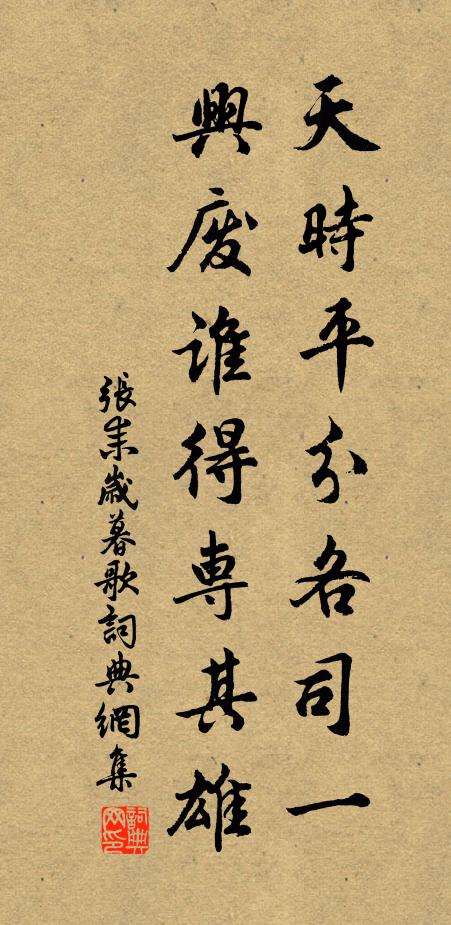 天時平分各司一
興廢谁得專其雄
張耒歲暮歌詞典網集
詞典網印